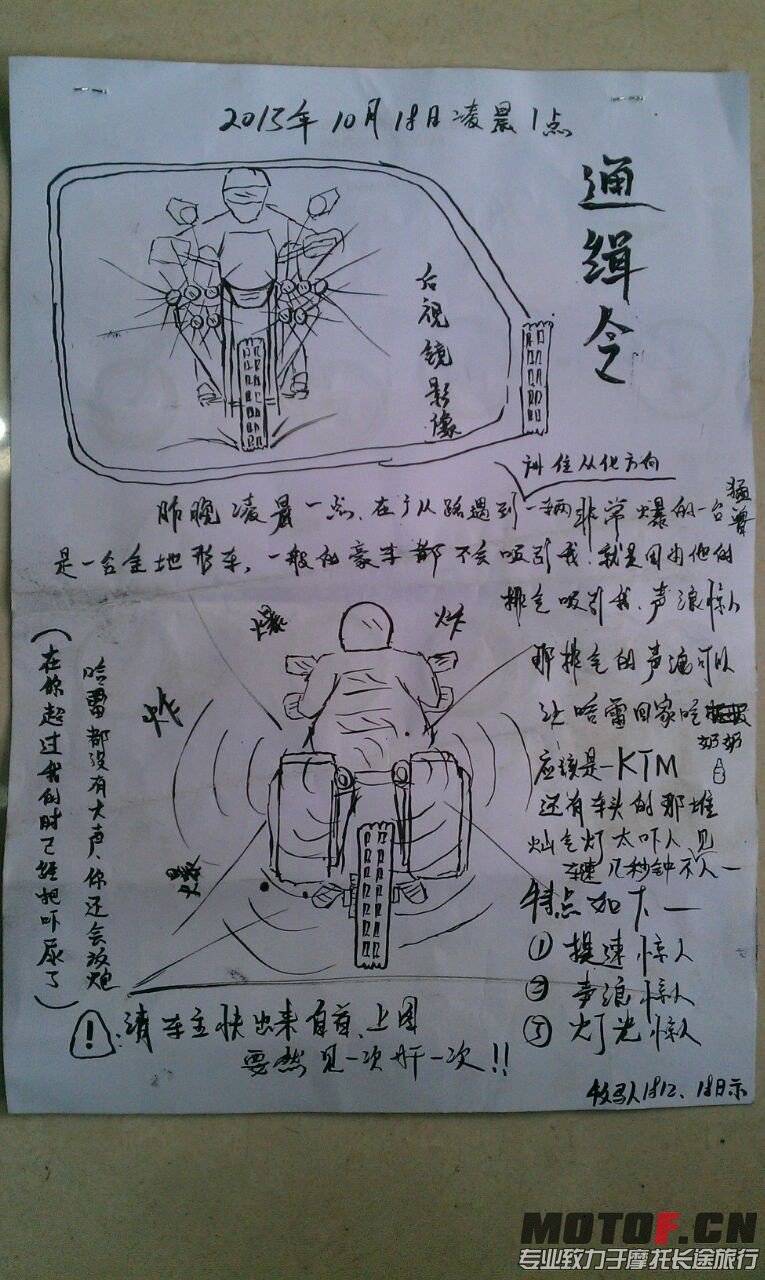 2013年10月18日凌晨1点
通缉令
后视镜影像
昨晚凌晨一点、在广从路遇到一辆非常爆的一台猛兽
从化方向
是一台全地形车，一般的豪车都不会吸引我、就是因为他的
排气吸引我、声浪惊人
那排气的声浪可以
让哈雷回家吃
奶奶
应该是一KTM
还有车头的那堆
灿气灯太吓人、见
车速几秒钟不人一
特点如下一
① 提速惊人
② 声浪惊人
③ 灯光惊人
爆
炸
炸
爆
哈雷都没有大声、你还会放炮
(在你超过我的时已经把吓尿了)
!：请车主快出来自首、上图
要然见一次奸一次!!
牧马人1812、18日示
MOTOF.CN
专业致力于摩托长途旅行